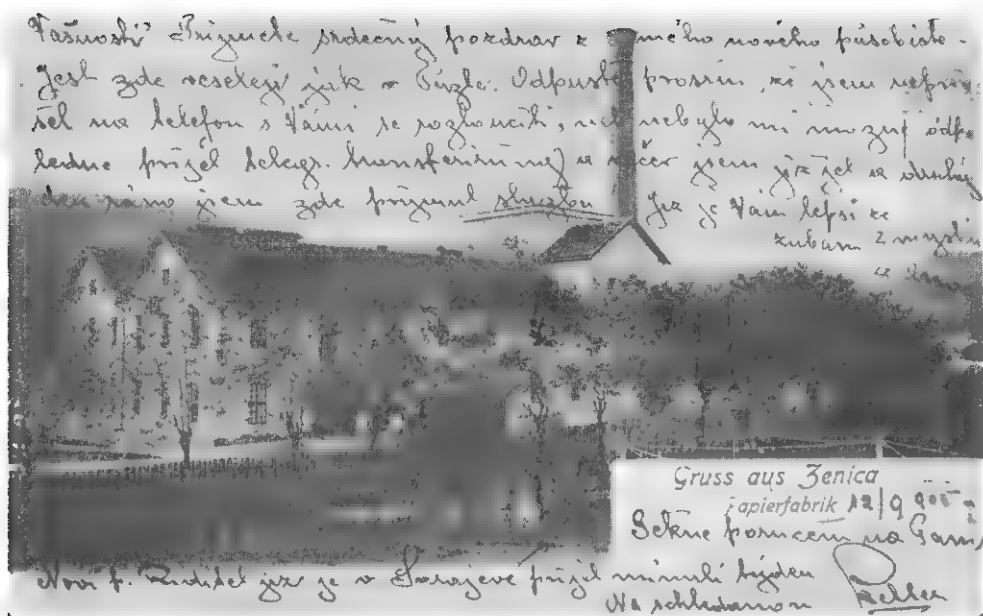 srdečný pozdrav z mého nového působiště.
Jest zde veseleji jak v Tuzle. Odpustě prosím, že jsem nepři-
šel na telefon s Vámi se rozloučiti, než nebylo mi možný odpo-
ledne přijel telegr. a večer jsem již jel a druhý
den ráno jsem zde přijmul službu Již je Vám lepší ze
zubam z mysli
a
Gruss aus Zenica
Papierfabrik 12/9 905
poručení na Paní
Nový p. již je v Sarajevě přijel minulí týden
Na schledanou